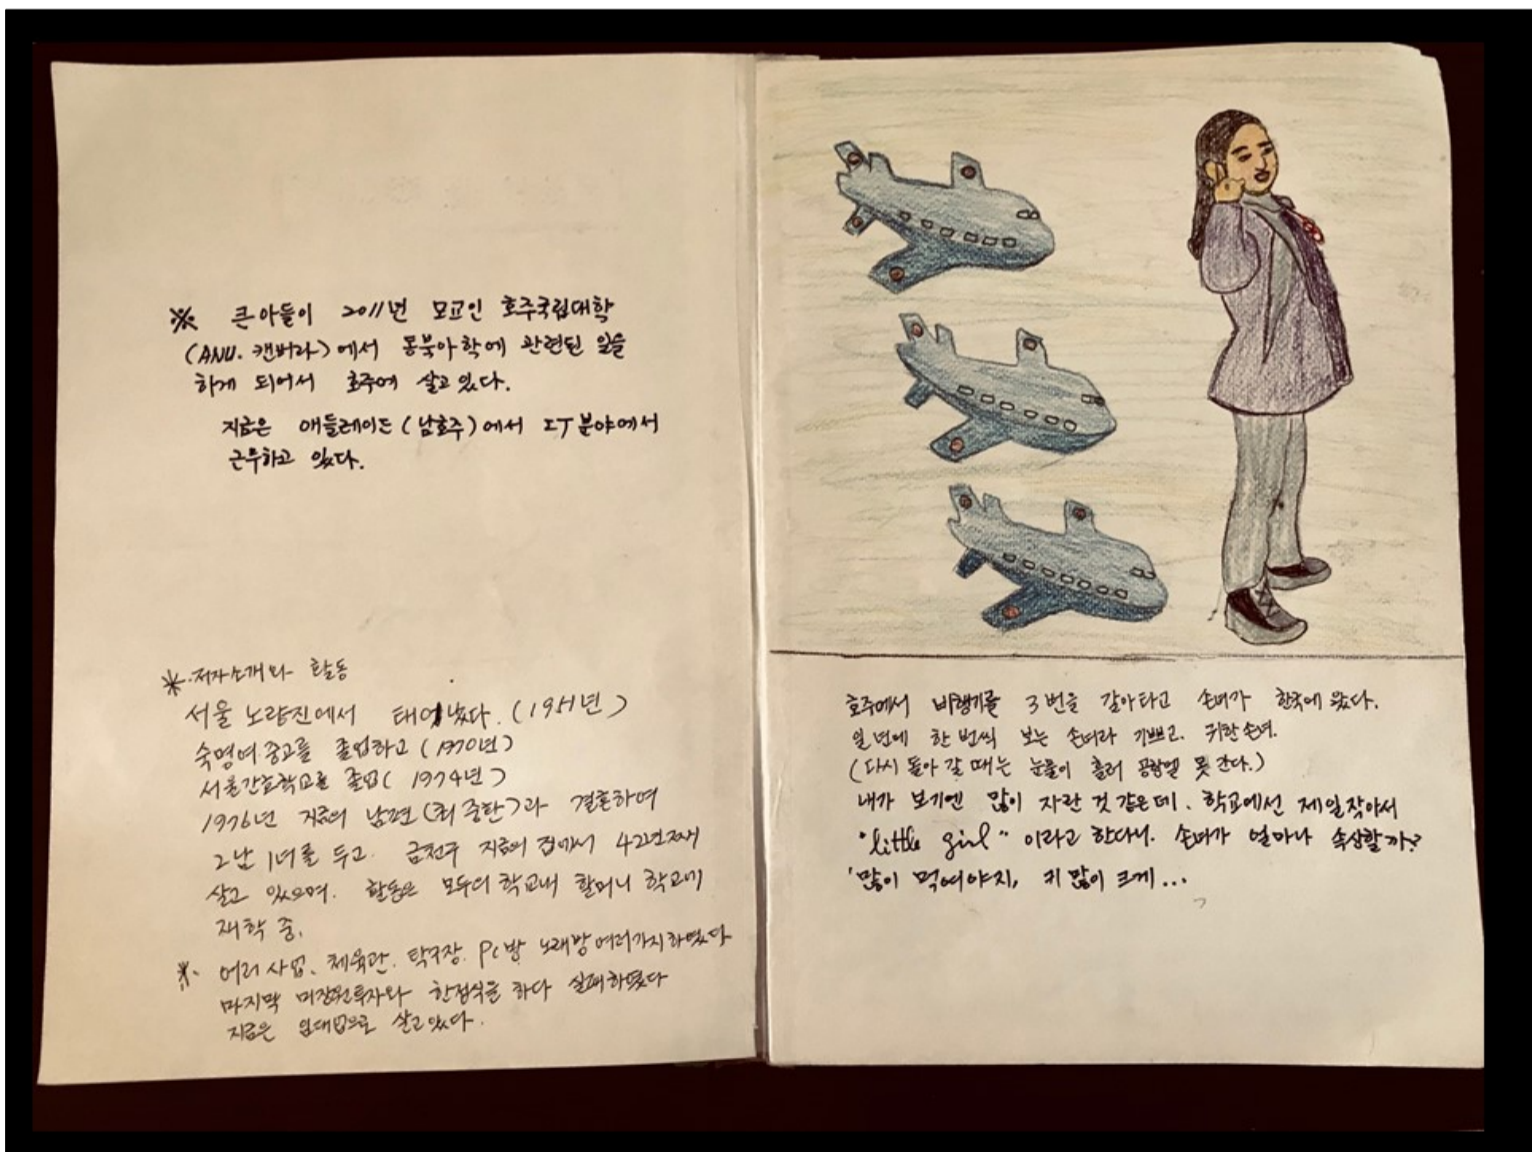 ※ 큰아들이 2011년 모교인 호주국립대학
(ANU. 캔버라)에서 동북아학에 관련된 일을
하게 되어서 호주에 살고있다.
지금은 애들레이드(남호주)에서 IT분야에서
근무하고 있다.
※. 저자소개와 활동
서울 노량진에서 태어났다. (1951년)
숙명여중고를 졸업하고 (1970년)
서울간호학교를 졸업( 1974년)
1976년 지금의 남편(최중한)과 결혼하여
2남 1녀를 두고. 금천구 지금의 집에서 42년째
살고 있으며. 활동은 모두의 학교내 할머니 학교에
재학 중.
※. 여러사업. 체육관. 탁구장. PC방 노래방여러가지하였다
마지막 미장원투자와 한정식을 하다 실패하였다
지금은 임대업으로 살고있다.
호주에서 비행기를 3번을 갈아타고 손녀가 한국에 왔다.
일년에 한번씩 보는 손녀라 기쁘고. 귀한손녀.
(다시 돌아 갈 때는 눈물이 흘러 공항엘 못 간다.)
내가 보기엔 많이 자란 것 같은데. 학교에선 제일작아서
"little girl" 이라고 한다니. 손녀가 얼마나 속상할까?
'많이 먹여야지, 키 많이 크게...